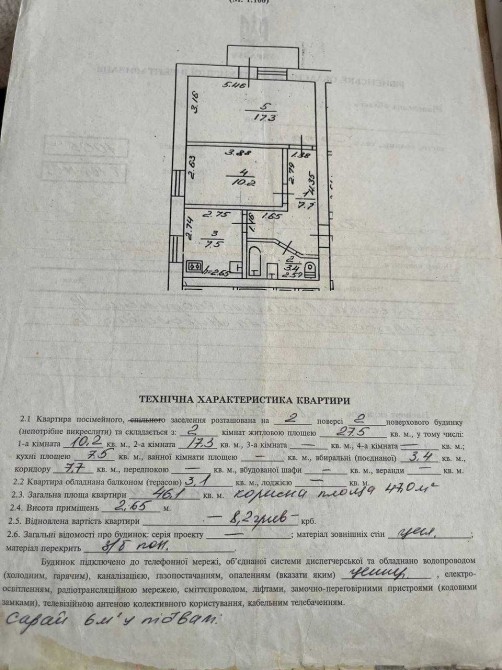 (М. 1:100)
5.46
3.16
5
17.3
3.88
1.38
2.63
4
10.2
2.79
4.35
1
7.7
2.75
1.65
2.74
3
7.5
1.16
2
3.4
h=2.65
2.57
ТЕХНІЧНА ХАРАКТЕРИСТИКА КВАРТИРИ
2.1 Квартира посімейного, спільного заселення розташована на 2 поверсі 2 поверхового будинку
(непотрібне викреслити) та складається з: 2 кімнат житловою площею 27.5 кв. м., у тому числі:
1-а кімната 10,2 кв. м., 2-а кімната 17.3 кв. м., 3-а кімната — кв. м., 4-а кімната — кв. м.;
кухні площею 7.5 кв. м., ванної кімнати площею — кв. м., вбиральні (поєднаної) 3,4 кв. м.,
коридору 7.7 кв. м., передпокою — кв. м., вбудованої шафи — кв. м., веранди — кв. м.
2.2 Квартира обладнана балконом (терасою) 3,1 кв. м., лоджією — кв. м.
2.3. Загальна площа квартири 46,1 кв. м. корисна площа 47.0 м²
2.4. Висота приміщень 2,65 м.
2.5. Відновлена вартість квартири — 8,2 грив — крб.
2.6. Загальні відомості про будинок: серія проекту — ; матеріал зовнішніх стін цегл. ;
матеріал перекрить з/б пан.
Будинок підключено до телефонної мережі, об'єднаної системи диспетчерської та обладнано водопроводом
(холодним, гарячим), каналізацією, газопостачанням, опаленням (вказати яким) , електро-
освітленням, радіотрансляційною мережею, сміттєпроводом, ліфтами, замочно-переговорними пристроями (кодовими
замками), телевізійною антеною колективного користування, кабельним телебаченням.
Сарай 6 м² у підвалі